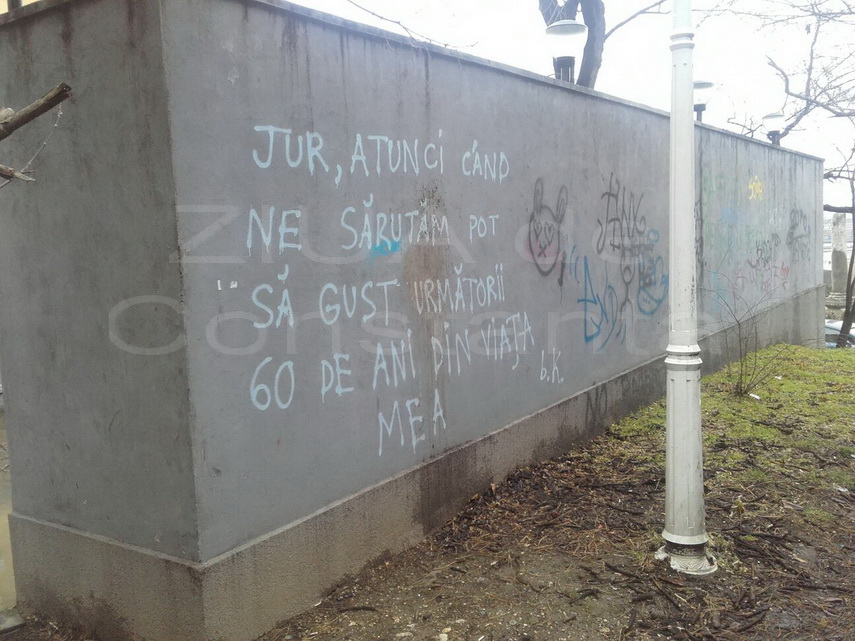 JUR, ATUNCI CÂND
NE SĂRUTĂM POT
SĂ GUST URMĂTORII
60 DE ANI DIN VIAȚA
MEA
b.K.
ZIUA de
Constanta